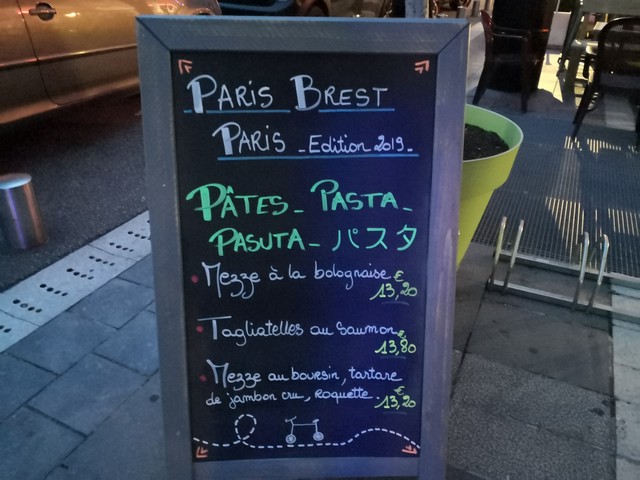 PARIS BREST
PARIS - Edition 2019 -
PÂTES - PASTA -
PASUTA - パスタ
Mezze à la bolognaise
13,20 €
Tagliatelles au saumon
13,80 €
Mezze au boursin, tartare
de jambon cru, roquette.
13,20 €